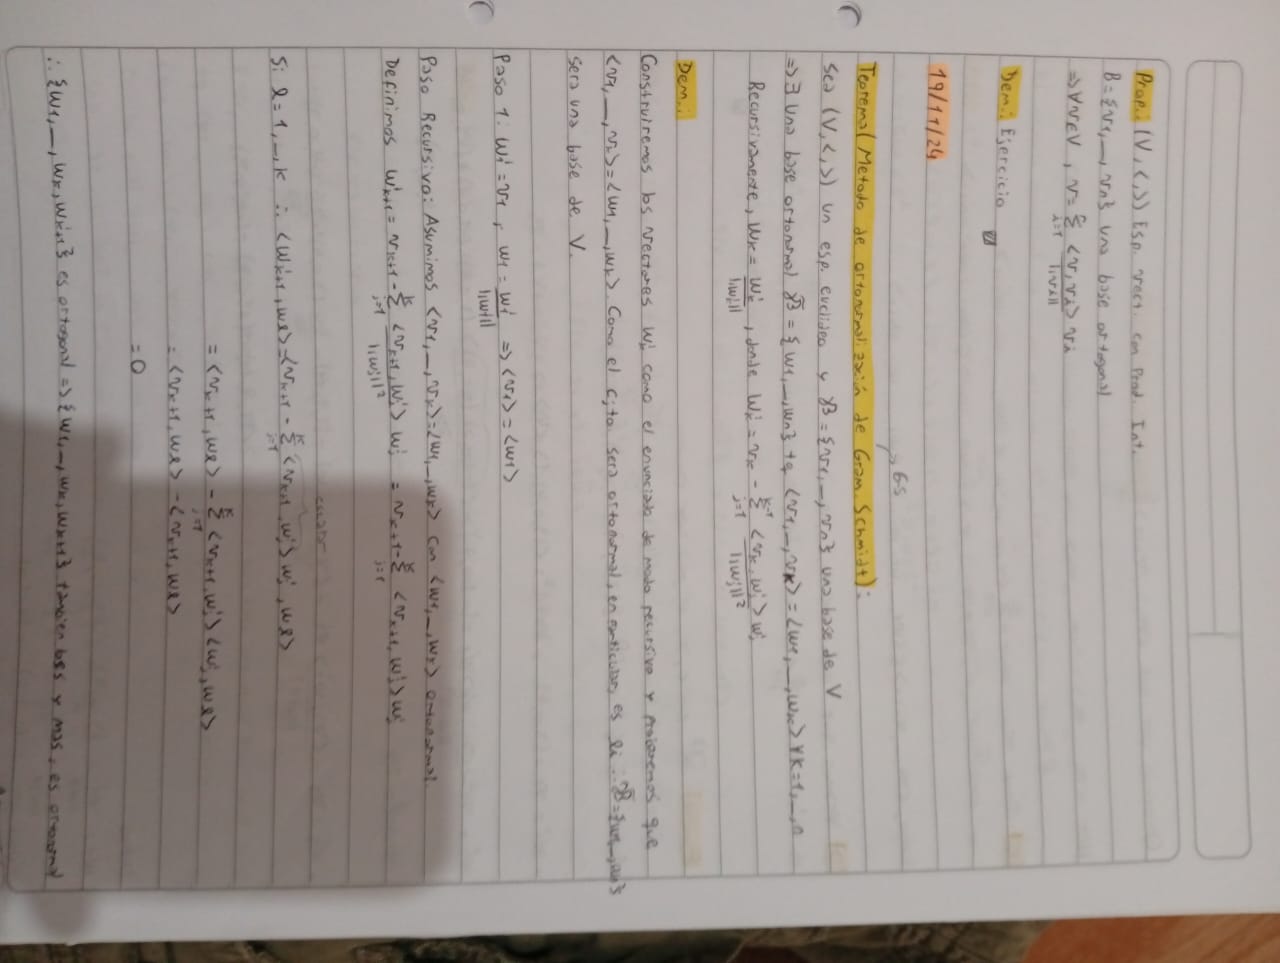 Prop.: (V, <,>) Esp. vect. con Prod. Int.
B = {v1, _, vn} una base ortogonal
=> ∀v∈V, v = Σ_{i=1}^{n} <v, vi>/||vi|| vi
Dem.: Ejercicio
19/11/24
→ G-S
Teorema (Metodo de ortonormalización de Gram. Schmidt):
Sea (V, <,>) un esp. euclideo y B = {v1, _, vn} una base de V
=> ∃ una base ortonormal B̃ = {w1, _, wn} tq <v1, _, vk> = <w1, _, wk> ∀k=1, _, n
Recursivamente, wk = w'k/||w'k||, donde w'k = vk - Σ_{j=1}^{k-1} <vk, w'j> w'j/||w'j||²
Dem.:
Construiremos los vectores w'i como el enunciado de modo recursivo y probaremos que
<v1, _, vk> = <w1, _, wk>. Como el cjto será ortonormal, en particular, es li ∴ B̃ = {w1, _, wn}
será una base de V.
Paso 1: w'1 = v1, w1 = w'1/||w'1|| => <v1> = <w1>
Paso Recursivo: Asumimos <v1, _, vk> = <w1, _, wk> con <w1, _, wk> ortonormal.
Definimos w'k+1 = vk+1 - Σ_{j=1}^{k} <vk+1, w'j> w'j/||w'j||² = vk+1 - Σ_{j=1}^{k} <vk+1, w'j> w'j
escalar
Si l = 1, _, k ∴ <w'k+1, wl> = <vk+1 - Σ_{j=1}^{k} <vk+1, w'j> w'j, wl>
= <vk+1, wl> - Σ_{j=1}^{k} <vk+1, w'j> <w'j, wl>
= <vk+1, wl> - <vk+1, wl>
= 0
∴ {w1, _, wk, w'k+1} es ortogonal => {w1, _, wk, wk+1} tambien y mas, es ortonormal